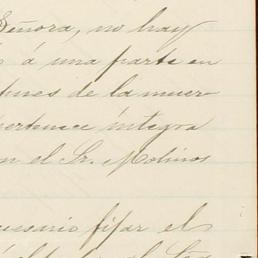 Señora, no hay
á una parte en
tures de la muer
pertenece íntegra
n el Sr. Molinos
cesario fijar el